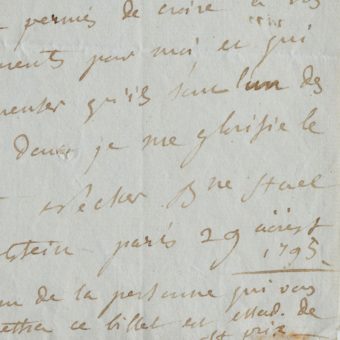 permis de croire à vos
ments pour moi et qui
penser qu'ils sont l'un des
dont je me glorifie le
Necker Bne Stael
lstein paris 29 août
1795.
de la personne qui vous
ettra ce billet est de